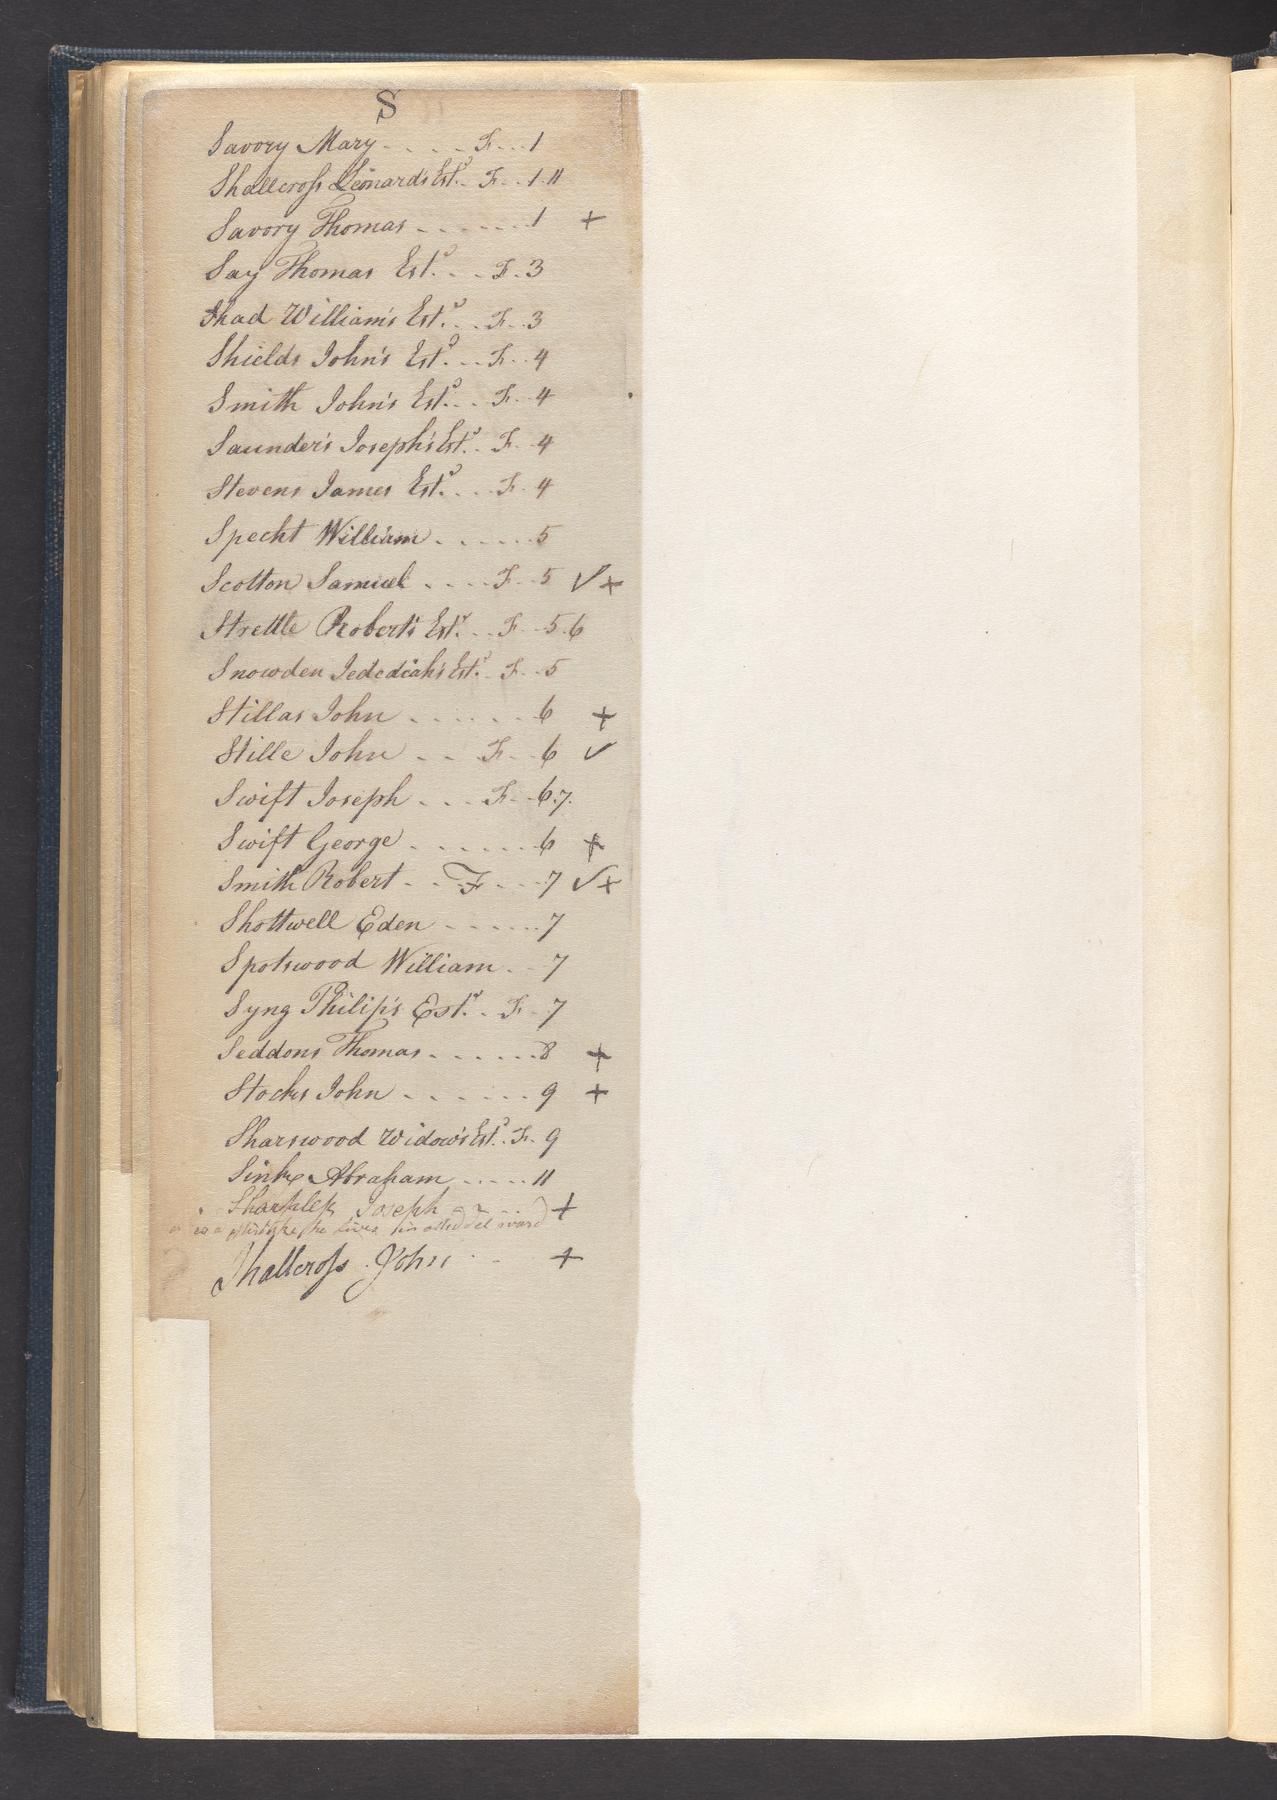 S
Savory Mary - . . . - F. . . 1
Shallcross Leonard's Est.^e . F. . . 1. 11
Savory Thomas - . . . . . . 1 +
Say Thomas Est.^e . . . F. . 3
Shad William's Est.^e . . . F. . 3
Shields John's Est.^e . . . F. . 4
Smith John's Est.^e . . . F. . 4
Saunder's Joseph's Est.^e . . F. . 4
Stevens James Est.^e . . . F. . 4
Specht William . . . . . . 5
Scotton Samuel . . . . F. . 5 ✓ +
Strettle Robert's Est.^e . . . F. . . 5. 6
Snowden Jedediah's Est.^e . . F. . 5
Stillas John . . . . . . 6 +
Stille John . . . F. . 6 ✓
Swift Joseph . . . F. . . 6. 7.
Swift George . . . . . . . 6 +
Smith Robert . . . F . . . . 7 ✓ +
Shottwell Eden - . . . . . . 7
Spotswood William . . 7
Syng Philip's Est.^e . . F. . 7
Seddons Thomas . . . . . . . 8 +
Stocks John . . . . . . . 9 +
Sharswood Widow's Est.^e . . F. . 9
Sink Abraham . . . . . 11
Sharpless Joseph +
is a Mistake he lives in Midd del ward
Shallcross John . . . +